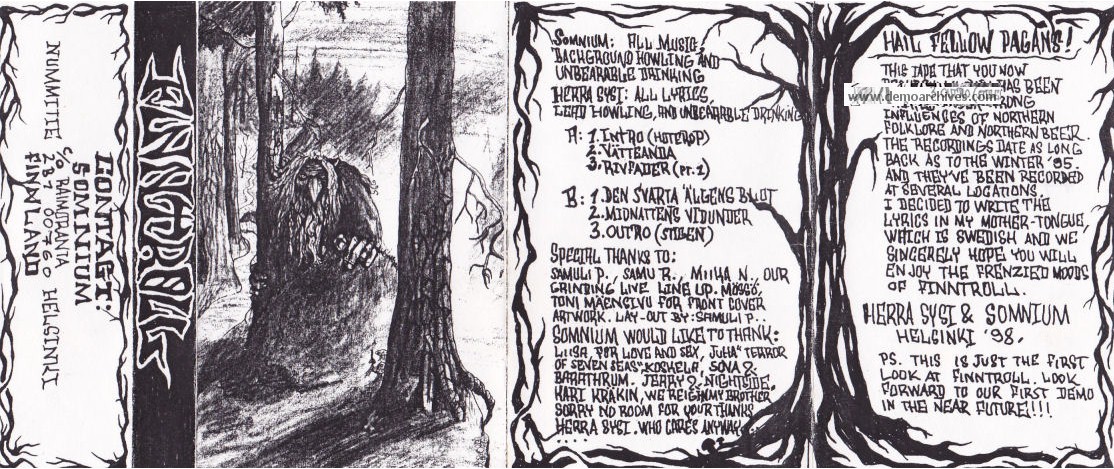 CONTACT:
SOMNIUM
NUMMITIE
HELSINKI
FINNLAND
FINNTROLL
SOMNIUM: ALL MUSIC,
BACKGROUND HOWLING AND
UNBEARABLE DRINKING
HERRA SYSI: ALL LYRICS,
LEAD HOWLING, AND UNBEARABLE DRINKING
A: 1. INTRO (HOTEROP)
2. VÄTTEANDA
3. RIVFADER (PT. 1)
B: 1. DEN SVARTA ÄLGENS BLOT
2. MIDNATTENS VIDUNDER
3. OUTRO (STIGEN)
SPECIAL THANKS TO:
SAMULI P., SAMU R., MIIHA N., OUR
GRINDING LIVE LINE UP. MÖSSÖ,
TONI MÄENSIVU FOR FRONT COVER
ARTWORK. LAY-OUT BY: SAMULI P..
SOMNIUM WOULD LIKE TO THANK:
LIISA FOR LOVE AND SEX, JUHA "TERROR
OF SEVEN SEAS" KOSKELA, SOVA &
BARATHRUM. JERRY & NIGHTSIDE,
KARI KRAKIN, WE REIGN MY BROTHER
SORRY NO ROOM FOR YOUR THANKS
HERRA SYSI. WHO CARES ANYWAY...
HAIL FELLOW PAGANS!
THIS TAPE THAT YOU NOW
HAS BEEN
www.demoarchives.com
INFLUENCES OF NORTHERN
FOLKLORE AND NORTHERN BEER.
THE RECORDINGS DATE AS LONG
BACK AS TO THE WINTER '95.
AND THEY'VE BEEN RECORDED
AT SEVERAL LOCATIONS.
I DECIDED TO WRITE THE
LYRICS IN MY MOTHER-TONGUE,
WHICH IS SWEDISH AND WE
SINCERELY HOPE YOU WILL
ENJOY THE FRENZIED MOODS
OF FINNTROLL.
HERRA SYSI & SOMNIUM
HELSINKI '98.
PS. THIS IS JUST THE FIRST
LOOK AT FINNTROLL. LOOK
FORWARD TO OUR FIRST DEMO
IN THE NEAR FUTURE!!!